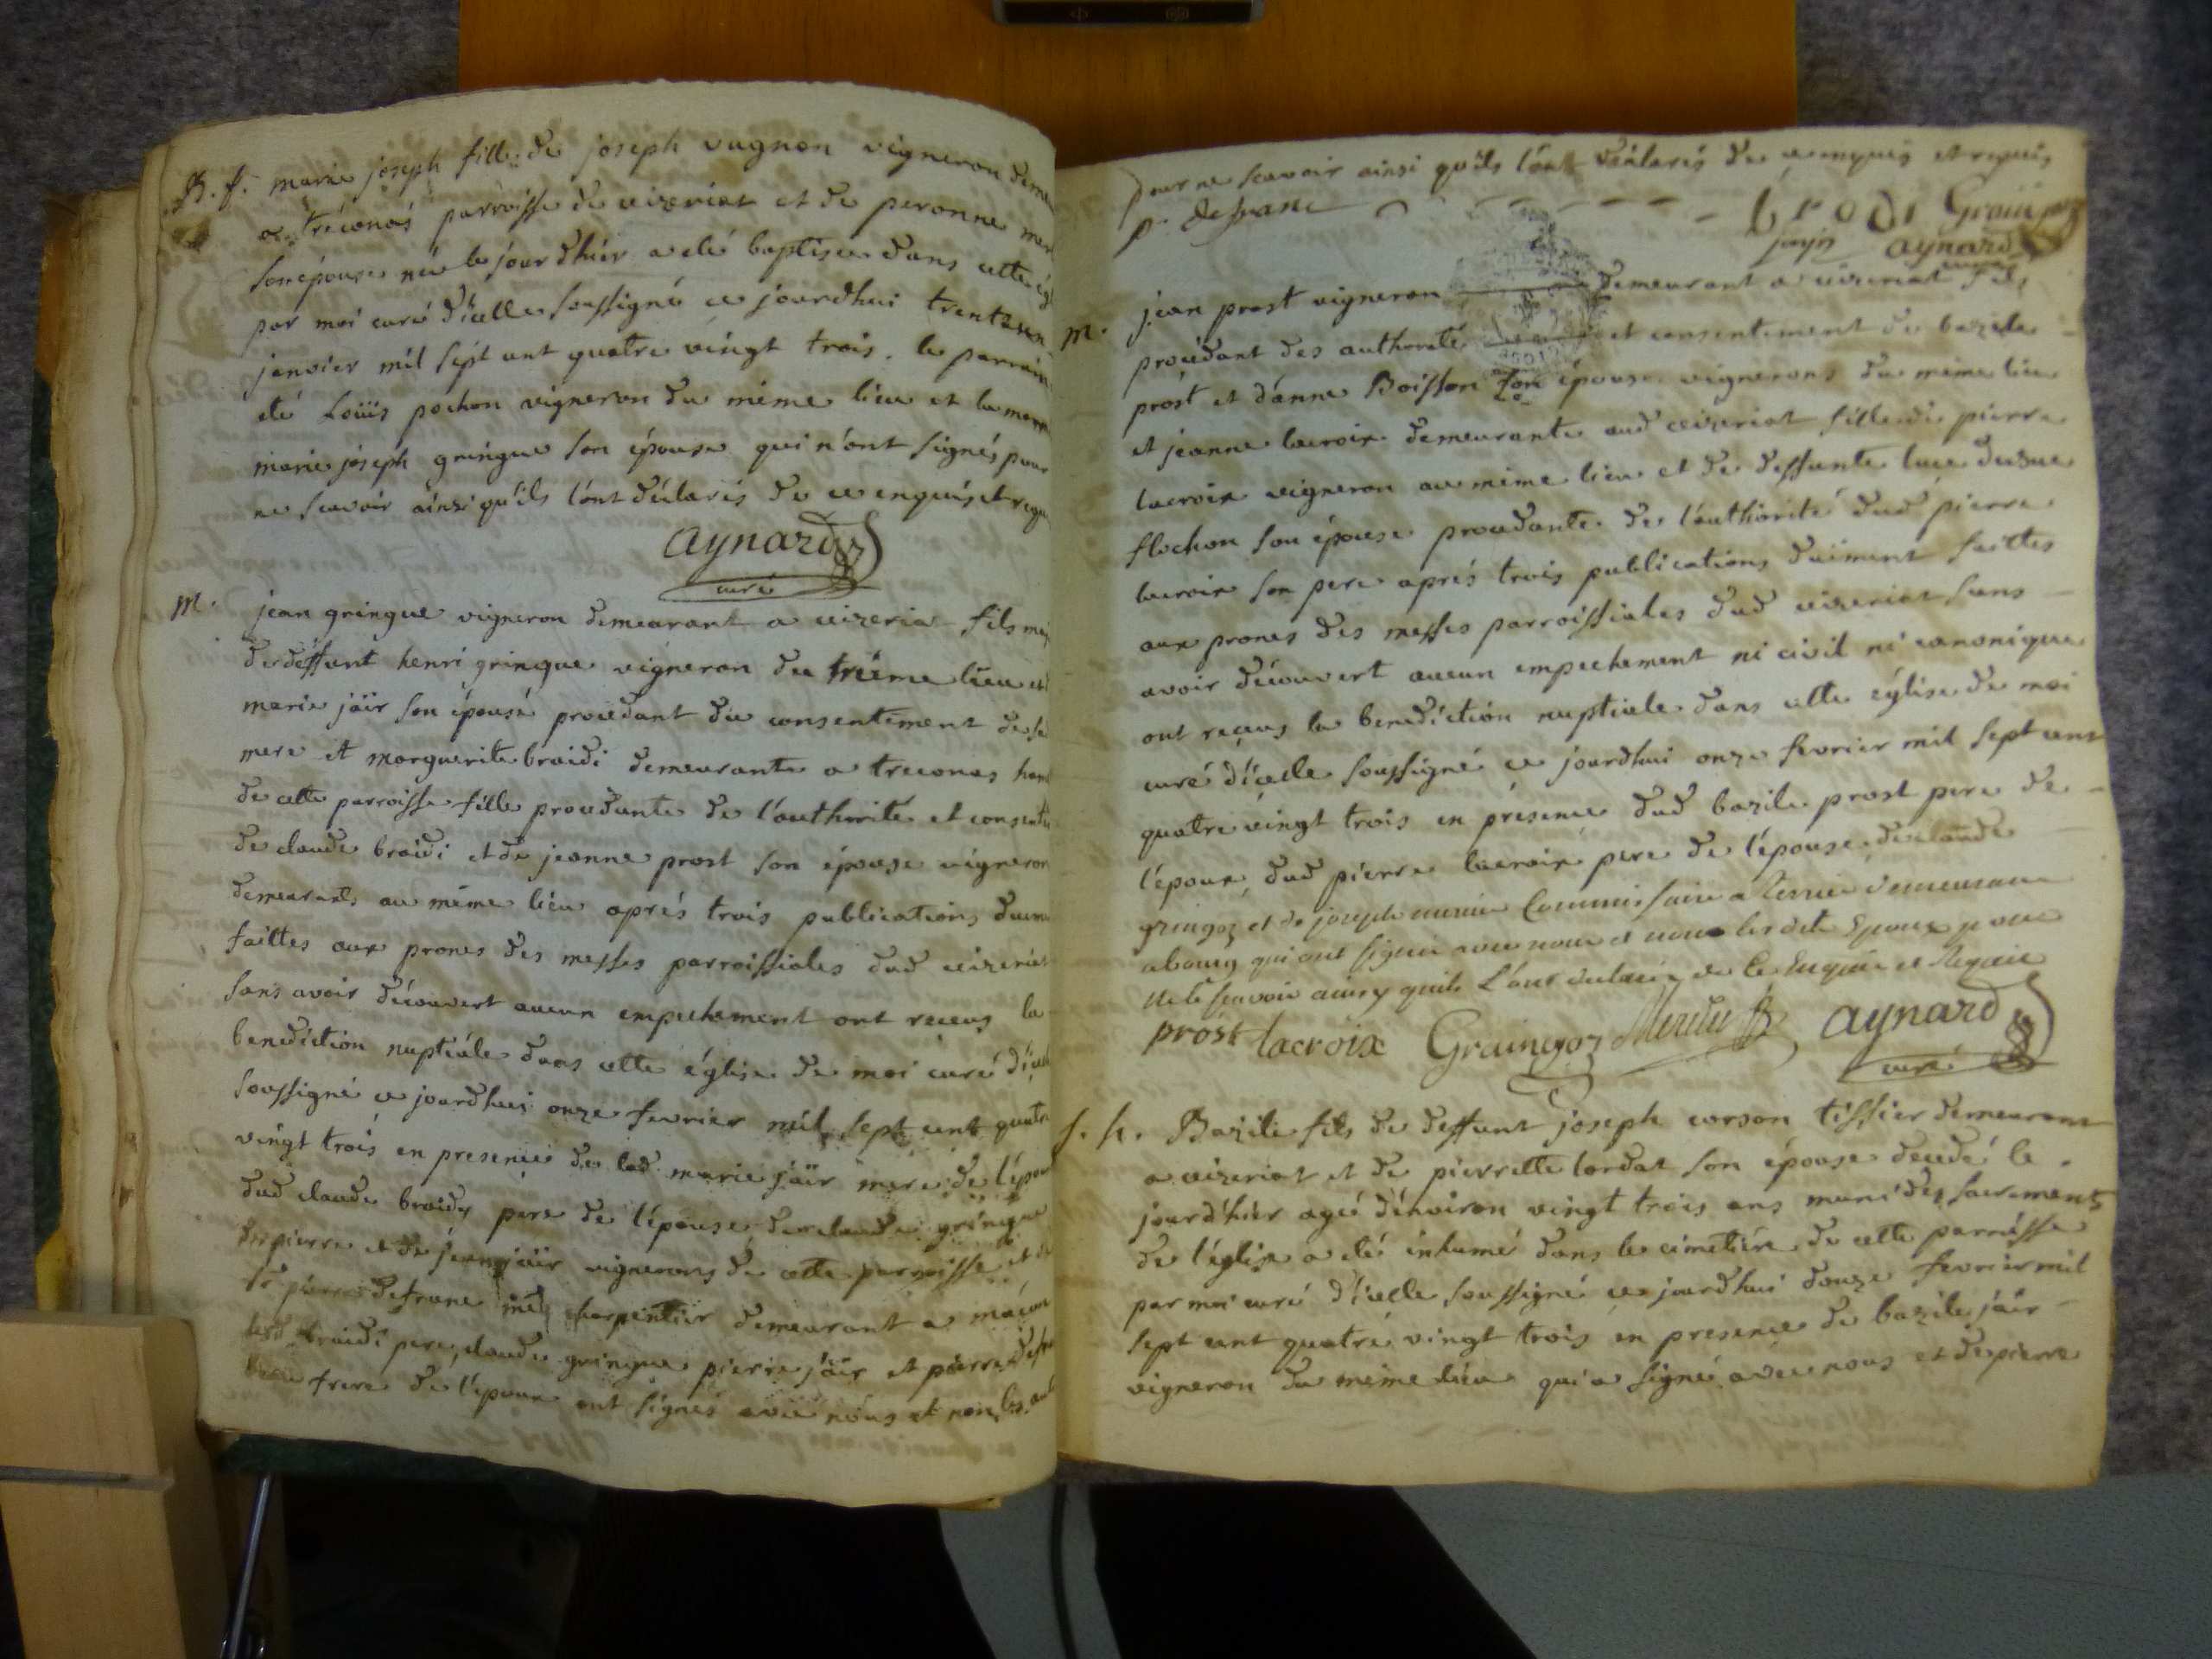 B. f. marie joseph fille de joseph vugnon vigneron deme
a tréconas parroisse de vizeriat et de peronne mer
son épouse née le jour dhier a eté baptisée dans cette égl
par moi curé d'icelle soussigné ce jourdhui trente
janvier mil sept cent quatre vingt trois. le parrain
eté Loüis pochon vigneron du même lieu et la marr
marie joseph gringue son épouse qui n'ont signés pour
ne scavoir ainsi qu'ils l'ont déclarés de ce enquis et requ
aynard
curé
M. jean gringue vigneron demeurant a vizeria fils maj
de deffunt henri gringue vigneron du même lieu et
marie jäir son épouse procedant du consentement de sa
mere et marguerite braidi demeurante a treconas ham
de cette parroisse fille procedante de l'authorité et consente
de claude braidi et de jeanne prost son épouse vigneron
demeurants au même lieu aprés trois publications duem
faittes aux prones des messes parroissiales dud vizeriat
sans avoir découvert aucun empechement ont recus la
benediction nuptiale dans cette église de moi curé d'icel
soussigné ce jourdhui onze fevrier mil sept cent quatre
vingt trois en presence de lad marie jäir mere de l'épou
dud claude braidy pere de l'épouse de claude gringue
de pierre et de jean jäir vignerons de cette parroisse et de
sr pierre defranc me charpentier demeurant a macon
led braidi pere, claude gringue pierre jäir et pierre defra
beau frere de l'epoux ont signés avec nous et non les aut
pour ne scavoir ainsi qu'ils l'ont déclarés de ce enquis et requis
p. defranc brodi Grain
aynard
curé
M. jean prost vigneron demeurant a vizeriat fils
procédant des authorité et consentement de bazile
prost et d'anne Boisson son épouse vignerons du meme lieu
et jeanne lacroix demeurante aud vizeriat fille de pierre
lacroix vigneron au même lieu et de deffunte luce
flochon son épouse procedante de l'authorité dud pierre
lacroix son pere aprés trois publications duëment faittes
aux prones des messes parroissiales dud vizeriat sans
avoir découvert aucun empechement ni civil ni canonique
ont reçus la benediction nuptiale dans cette église de moi
curé d'icelle soussigné ce jourdhui onze fevrier mil sept cent
quatre vingt trois en présence dud bazile prost pere de
l'époux, dud pierre lacroix pere de l'épouse, de claude
gringoz et de joseph Commissaire a Terrier demeurant
abourg qui ont signéé avec nous et non lesdits Epoux pour
ne le scavoir ainsy quils L'ont declaréz de Ce Enquis et Requis
prost lacroix Graingoz aynard
curé
f. h. Bazile fils de deffunt joseph corson tissier demeurant
a vizeriat et de pierrette lordat son épouse decedé le
jourd'hier agé d'environ vingt trois ans muni des sacrements
de l'église a eté inhumé dans le cimetiére de cette parroisse
par moi curé d'icelle soussigné ce jourdhui douze fevrier mil
sept cent quatre vingt trois en presence de bazile jäir
vigneron du même lieu qui a signé avec nous et de pierre